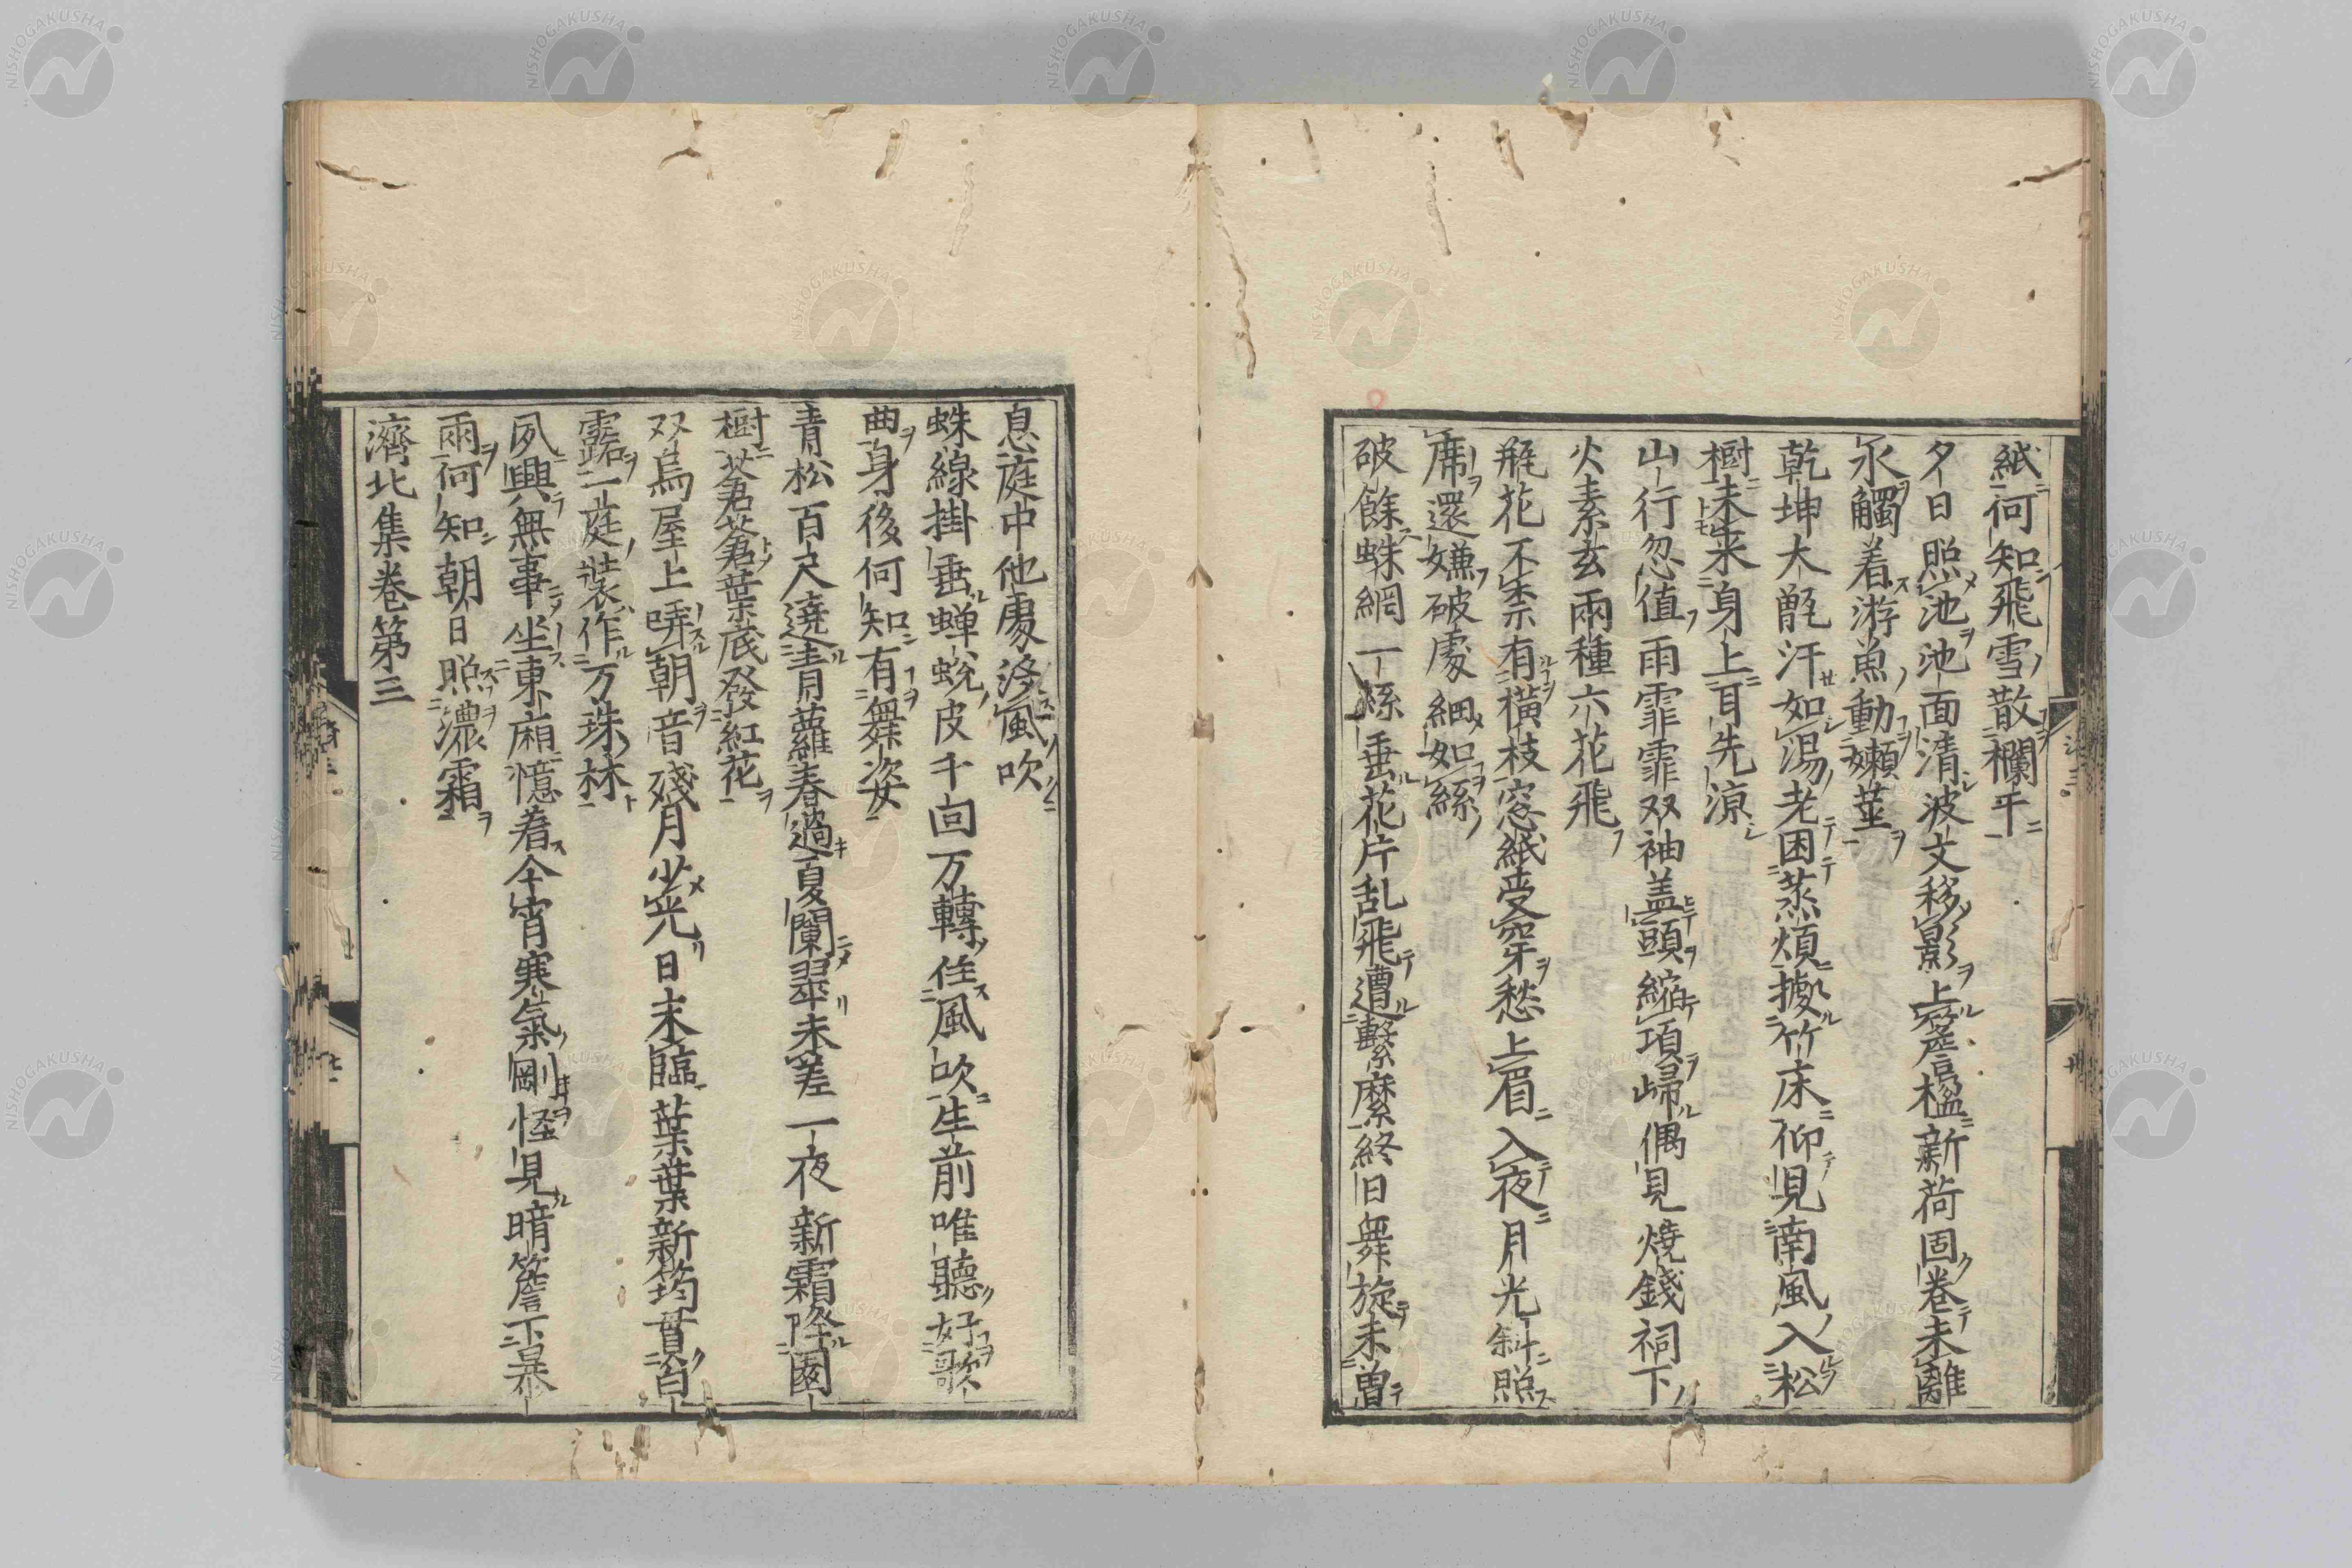 紙何知飛雪散欄干
夕日照池池面清波文移影上簷楹新荷固卷未離
水觸着游魚動嫩莖
乾坤大甑汗如湯老困蒸煩據竹床仰見南風入松
樹未来身上耳先涼
山行忽值雨霏霏双袖盖頭縮項歸偶見燒錢祠下
火素玄兩種六花飛
瓶花不柰有橫枝窓紙受穿愁上眉入夜月光斜照
席還嫌破處細如絲
破餘蛛網一絲垂花片乱飛遭繫縻終旧舞旋未曽
息庭中他處滂風吹
蛛線掛垂蝉蛻皮千回万轉任風吹生前唯聽好歌
曲身後何知有舞姿
青松百尺遶青蘿春過夏闌翠未差一夜新霜降園
樹蒼蒼葉底發紅花
双烏屋上哢朝音殘月少光日未臨葉葉新筠貫白
露一庭裝作万珠林
夙興無事坐東廂憶着今宵寒氣剛怪見晴簷下暴
雨何知朝日照濃霜
濟北集巻第三
NISHOGAKUSHA